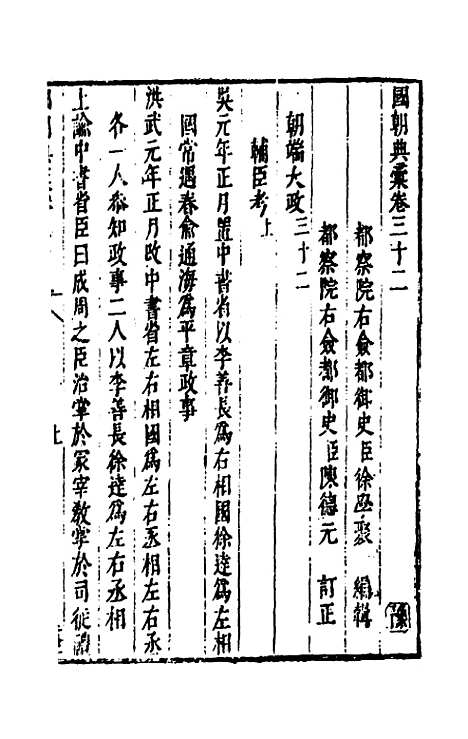 國朝典彙卷三十二
都察院右僉都御史臣徐學聚 編輯
都察院右僉都御史臣陳德元 訂正
朝端大政三十二
輔臣考上
吳元年正月置中書省以李善長爲右相國徐達爲左相
國常遇春俞通海爲平章政事
洪武元年正月改中書省左右相國爲左右丞相左右丞
各一人參知政事二人以李善長徐達爲左右丞相
上諭中書省臣曰成周之臣治掌於冢宰教掌於司徒禮